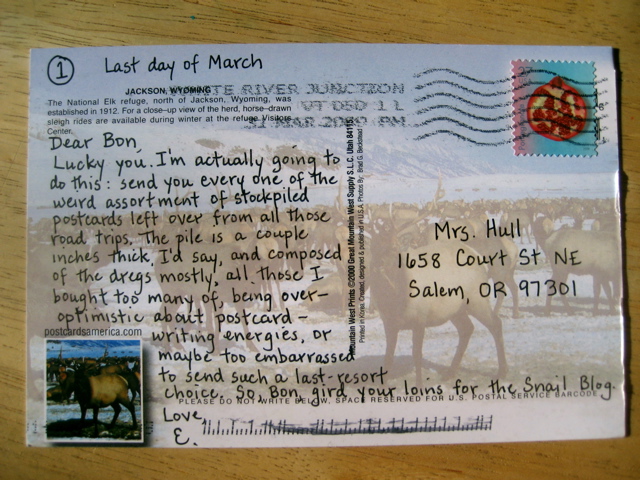 1 Last day of March
JACKSON, WYOMING
The National Elk refuge, north of Jackson, Wyoming, was
established in 1912. For a close-up view of the herd, horse-drawn
sleigh rides are available during winter at the refuge Visitors
Center.
WHITE RIVER JUNCTION
VT 050 1 L
31 MAR 2009 PM
Dear Bon,
Lucky you. I'm actually going to
do this: send you every one of the
weird assortment of stockpiled
postcards left over from all those
road trips. The pile is a couple
inches thick, I'd say, and composed
of the dregs mostly, all those I
bought too many of, being over-
optimistic about postcard-
writing energies, or
maybe too embarrassed
to send such a last-resort
choice. So Bon, gird your loins for the Snail Blog.
Love,
E.
postcardsamerica.com
Mountain West Prints ©2000 Great Mountain West Supply S.L.C. Utah 84115
Printed in Korea. Created, designed & published in U.S.A. Photos By: Brad G. Beckstead
Mrs. Hull
1658 Court St NE
Salem, OR 97301
PLEASE DO NOT WRITE BELOW, SPACE RESERVED FOR U.S. POSTAL SERVICE BARCODE